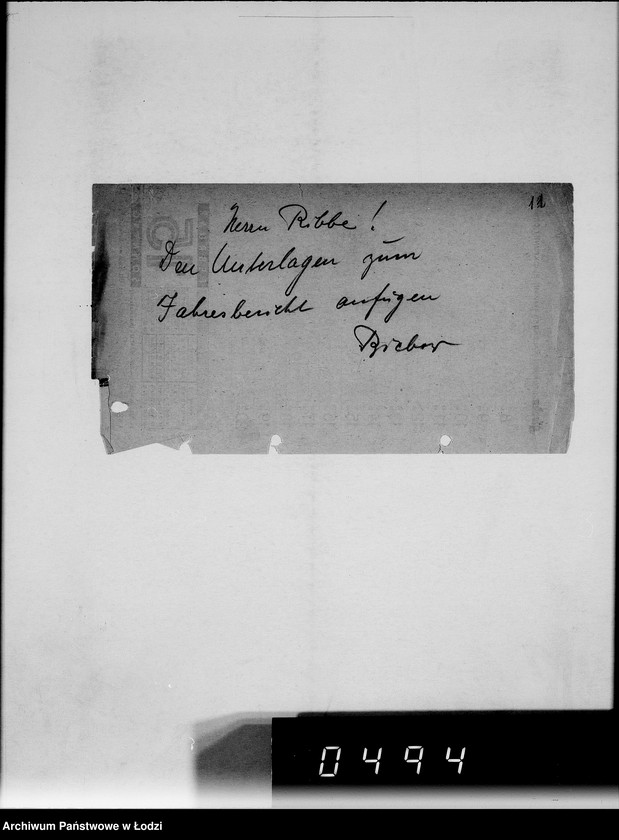 11
Herrn Ribbe!
Den Unterlagen zum
Jahresbericht anfügen
Biebow
0494
Archiwum Państwowe w Łodzi